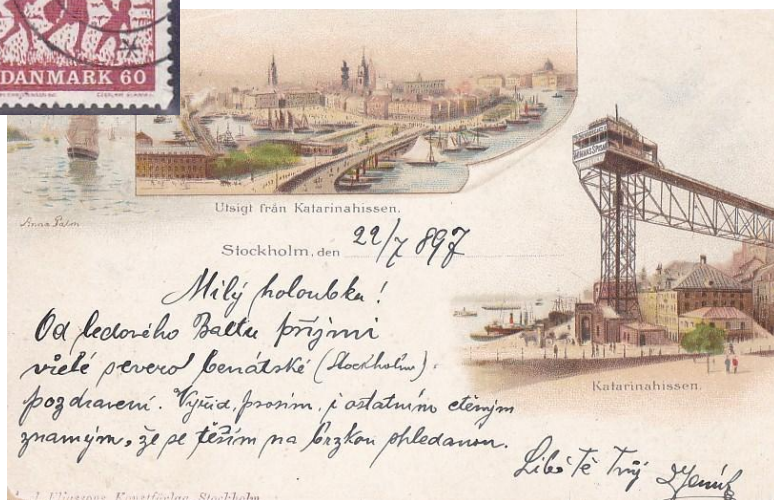 DANMARK 60
Anna Palm
Utsigt från Katarinahissen.
Stockholm, den 22/7 897
Milý holoubku!
Od ledového Baltu přijmi
vřelé severo benátské (Stockholm)
pozdravení. Vyřiď, prosím, i ostatním ctěným
známým, že se těším na brzkou shledanou.
Líbá Tě Tvůj
Katarinahissen.
Konstförlag, Stockholm